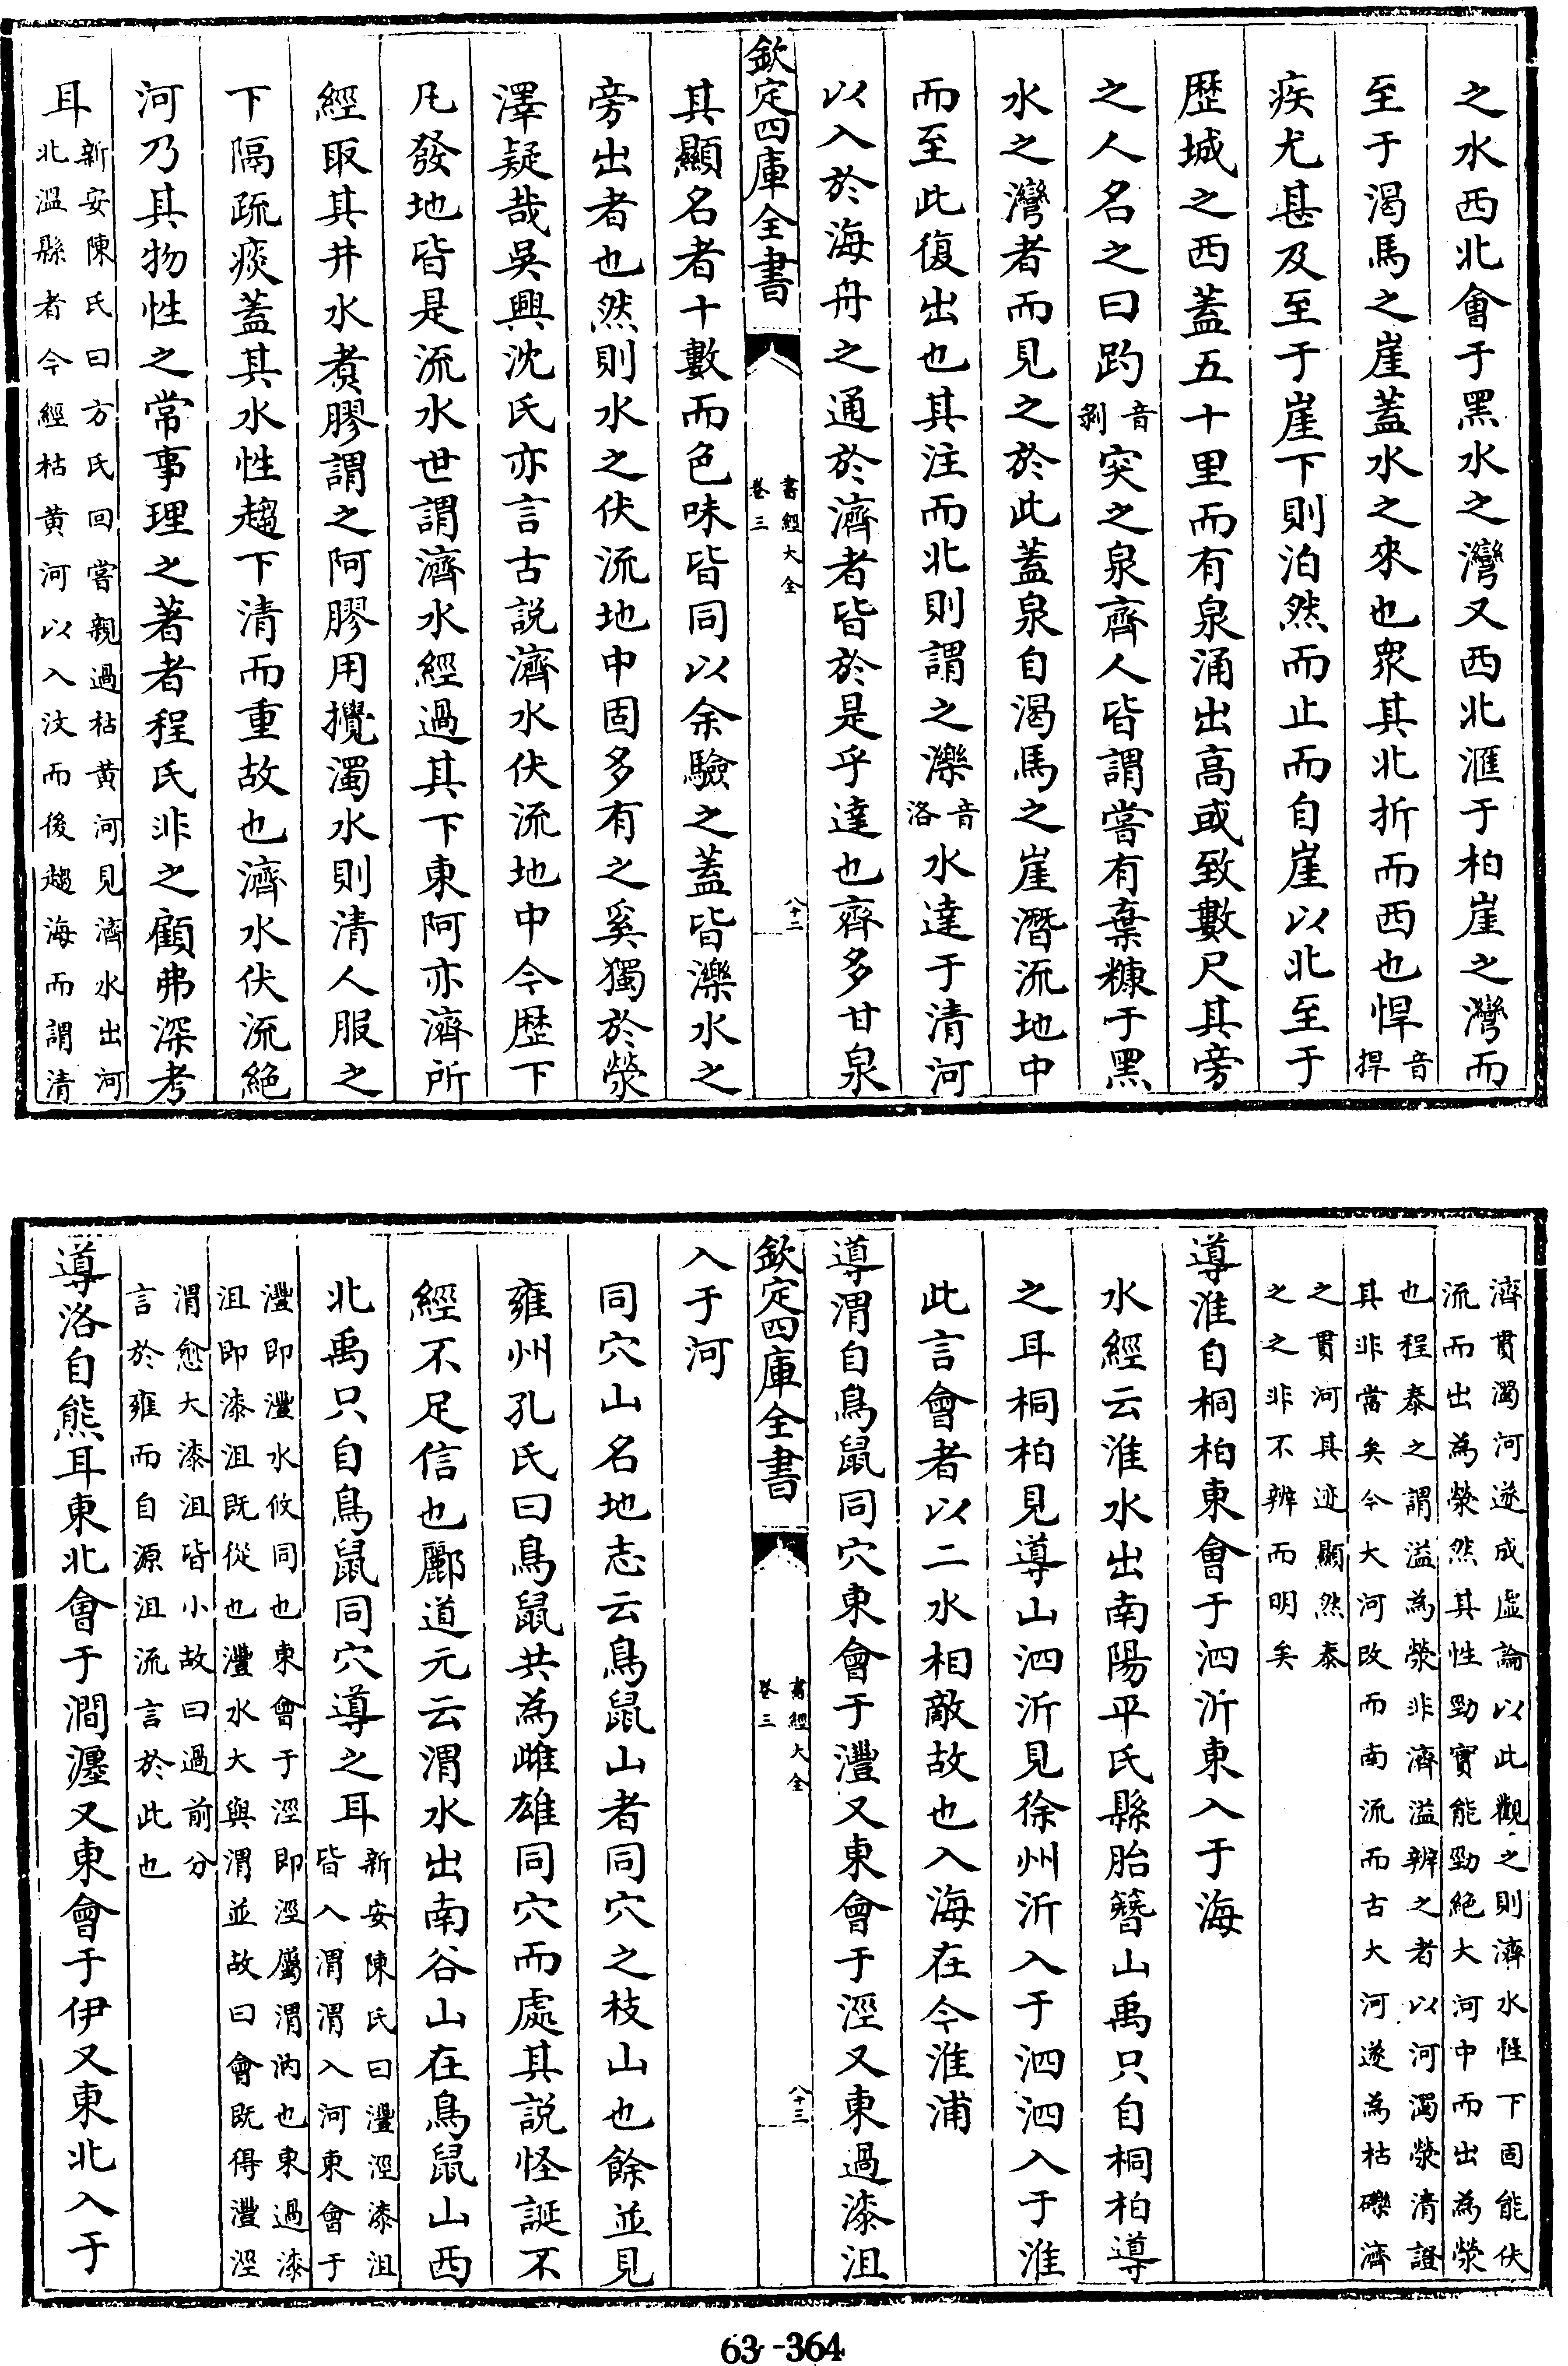 之水西北會于黑水之灣又西北滙于柏崖之灣而
至于渴馬之崖蓋水之來也眾其北折而西也悍音捍
疾尤甚及至于崖下則泊然而止而自崖以北至于
歴城之西蓋五十里而有泉涌出高或致數尺其旁
之人名之曰趵音剥突之泉齊人皆謂嘗有棄糠于黑
水之灣者而見之於此蓋泉自渴馬之崖潛流地中
而至此復出也其注而北則謂之濼音洛水達于清河
以入於海舟之通於濟者皆於是乎達也齊多甘泉
欽定四庫全書
書經大全
卷三
八十二
其顯名者十數而色味皆同以余驗之蓋皆濼水之
旁出者也然則水之伏流地中固多有之奚獨於滎
澤疑哉吳興沈氏亦言古説濟水伏流地中今歴下
凡發地皆是流水世謂濟水經過其下東阿亦濟所
經取其井水煑膠謂之阿膠用攪濁水則清人服之
下隔疏痰蓋其水性趨下清而重故也濟水伏流絶
河乃其物性之常事理之著者程氏非之顧弗深考
耳新安陳氏曰方氏回嘗親過枯黄河見濟水出河
北溫縣者今經枯黄河以入汶而後趨海而謂清
濟貫濁河遂成虛論以此觀之則濟水性下固能伏
流而出為滎然其性勁實能勁絶大河中而出為滎
也程泰之謂溢為滎非濟溢辨之者以河濁滎清證
其非當矣今大河改而南流而古大河遂為枯磧濟
之貫河其迹顯然泰
之之非不辨而明矣
導淮自桐柏東會于泗沂東入于海
水經云淮水出南陽平氏縣胎簪山禹只自桐柏導
之耳桐柏見導山泗沂見徐州沂入于泗泗入于淮
此言會者以二水相敵故也入海在今淮浦
導渭自鳥鼠同穴東會于灃又東會于涇又東過漆沮
欽定四庫全書
書經大全
卷三
八十三
入于河
同穴山名地志云鳥鼠山者同穴之枝山也餘並見
雍州孔氏曰鳥鼠共為雌雄同穴而處其説怪誕不
經不足信也酈道元云渭水出南谷山在鳥鼠山西
北禹只自鳥鼠同穴導之耳新安陳氏曰灃涇漆沮
皆入渭渭入河東會于
灃即灃水攸同也東會于涇即涇屬渭汭也東過漆
沮即漆沮既從也灃水大與渭並故曰會既得灃涇
渭愈大漆沮皆小故曰過前分
言於雍而自源沮流言於此也
導洛自熊耳東北會于澗瀍又東會于伊又東北入于
63-364